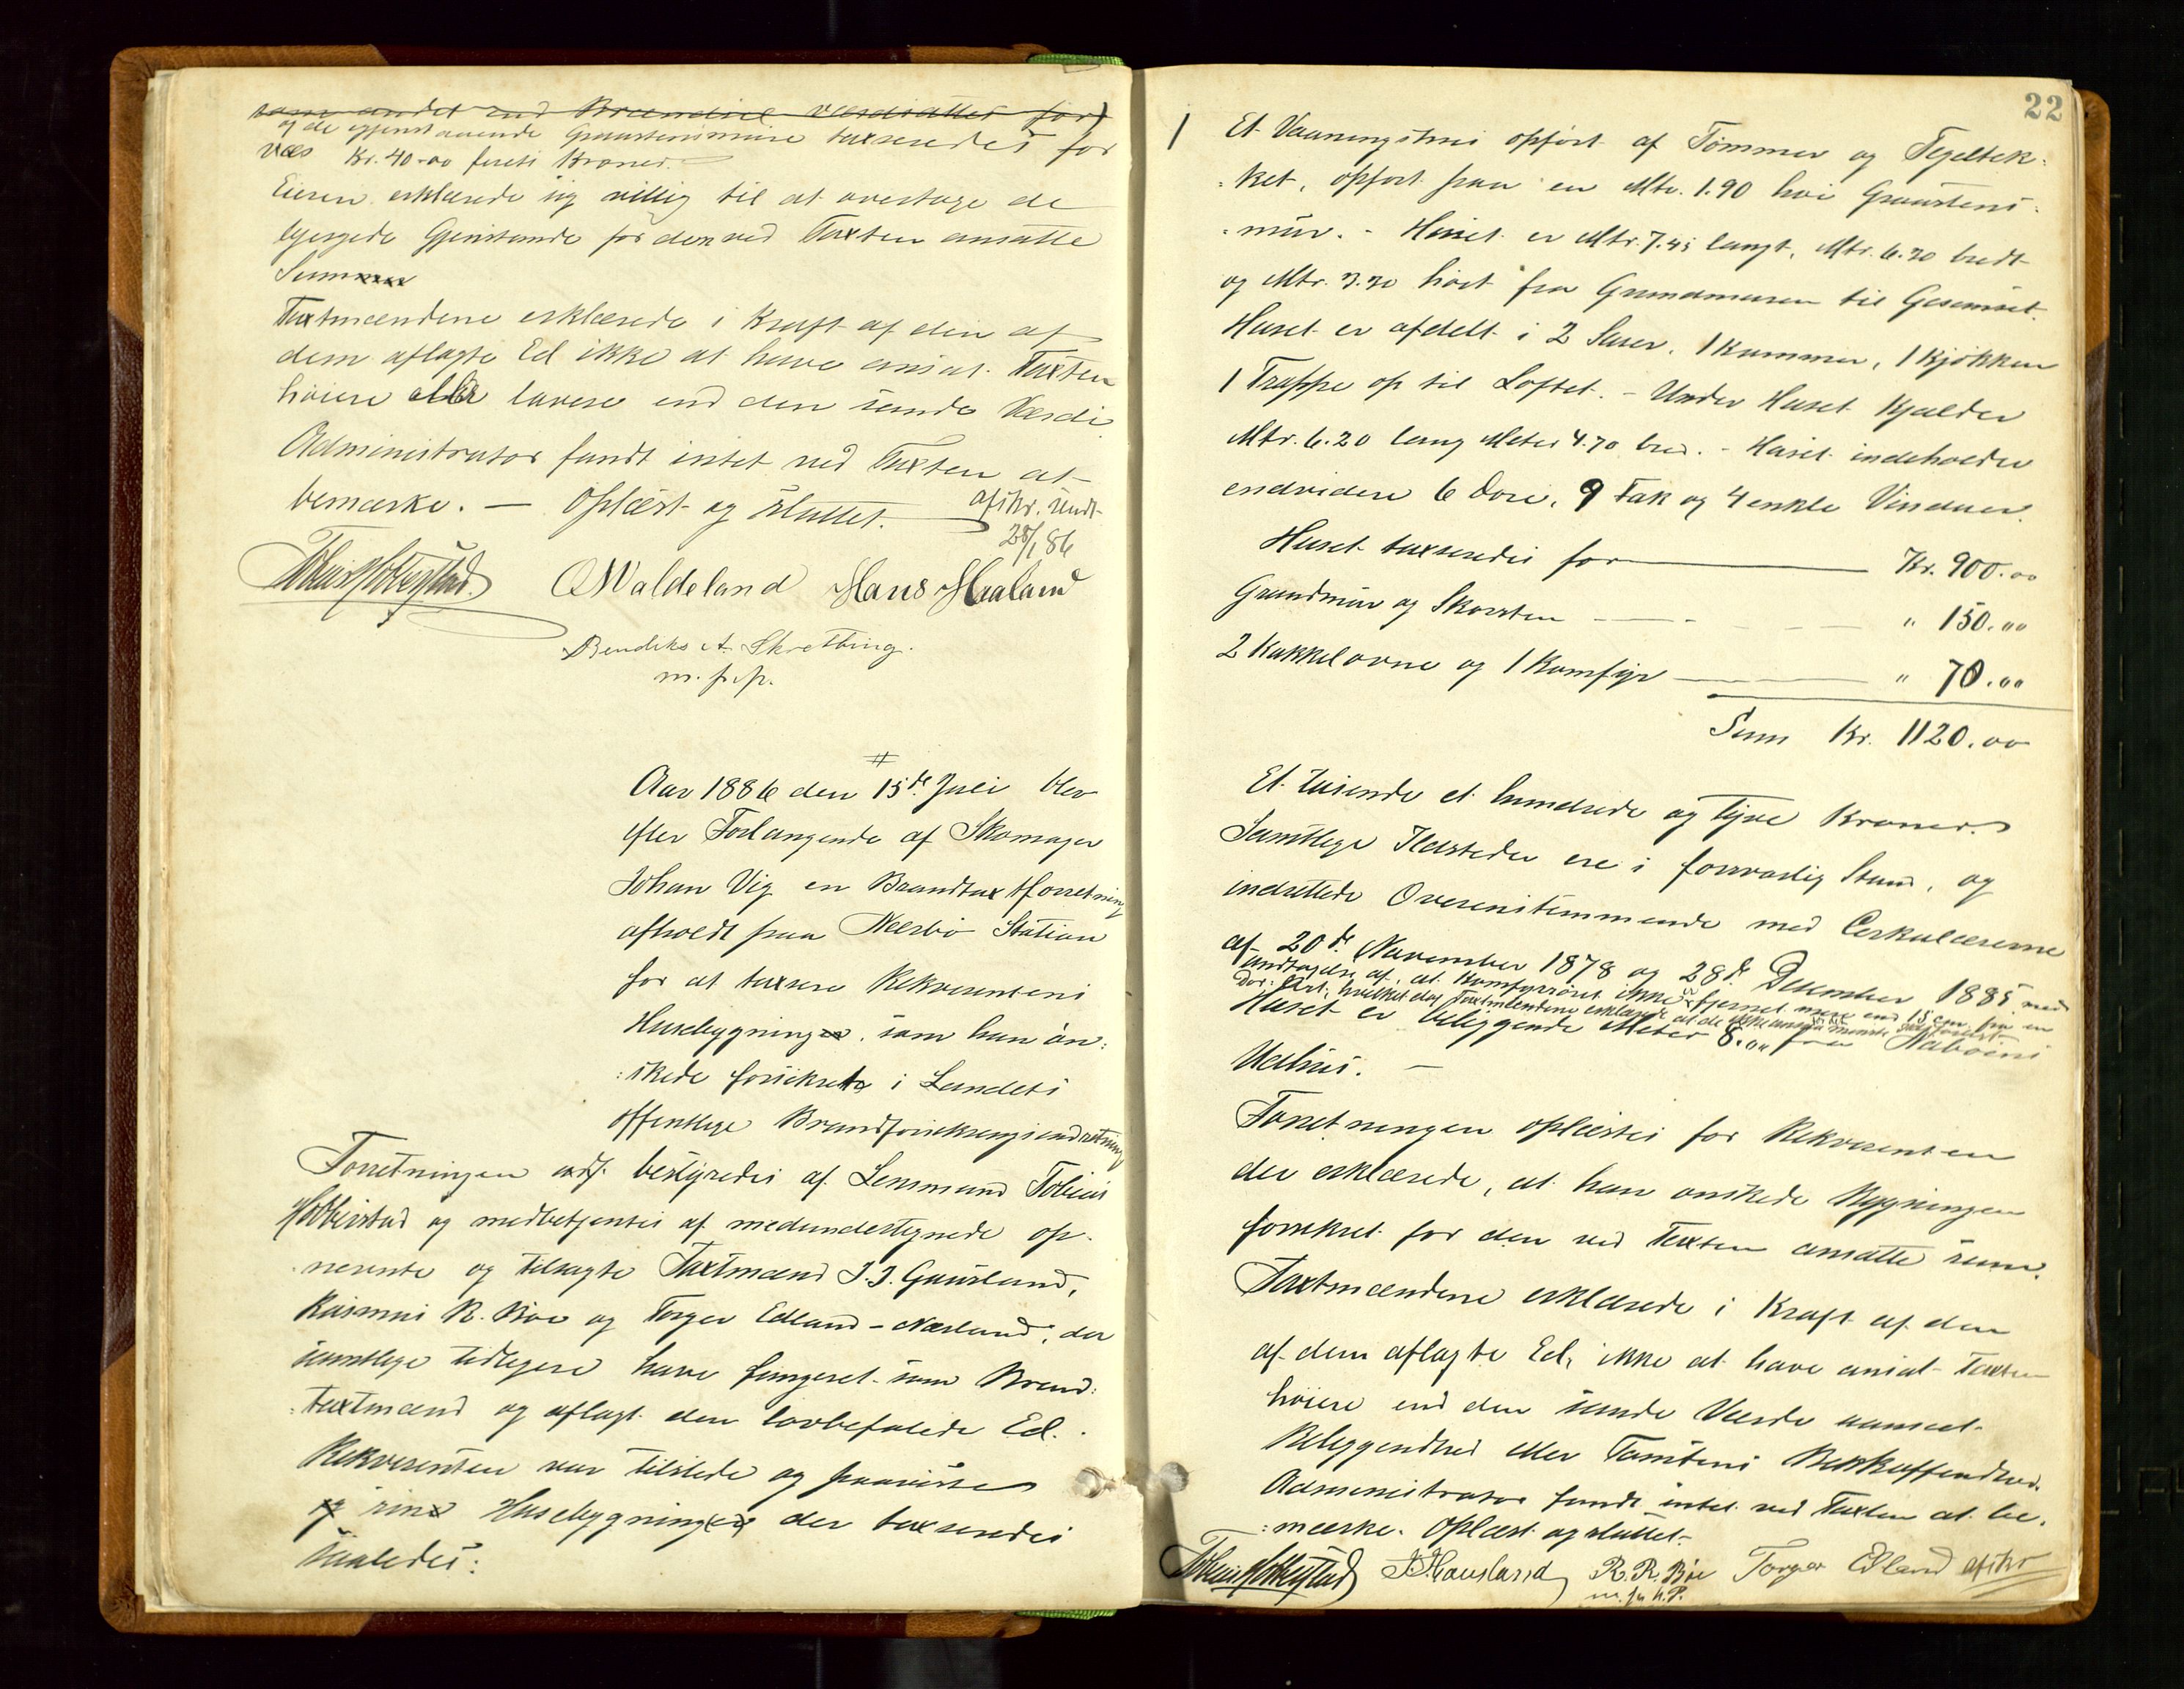 som andet end Brændsel værdsattes for)
og de gjenstaaende Graastensmure taxseredes for
Kr. 40.00 firti Kroner.
Eieren erklærede sig villig til at overtage de
Gjenstande for den ved Taxten ansatte
Sum
Taxtmændene erklærede i Kraft af den af
dem aflagte Ed ikke at have ansat Taxten
høiere eller lavere end den sande Værdi
Administrator fandt intet ved Taxten at
bemærke. — Oplæst og sluttet. afskr. sendt
28/1 86
Tobias Obbestad O Waldeland Hans Haaland
Bendiks A. Skretting.
m. p. p.
Aar 1886 den 15de Juli blev
efter Forlangende af Skomager
Johan Vig en Brandtaxtforretning
afholdt paa Nærbø Station
for at taxsere Rekvirentens
Husebygning som han øn:
:skede forsikret i Landets
offentlige Brandforsikringsindretning
Forretningen bestyredes af Lensmand Tobias
Obbestad og medbetjentes af medundertegnede op-
nevnte og tilsagte Taxtmænd J. J. Gausland,
Rasmus R. Bøe og Torger Edland-Nærland, der
samtlige tidligere have fungeret som Brand:
:taxtmænd og aflagt den lovbefalede Ed.
Rekvirenten var tilstede og paaviste
og sine Husebygninger der taxseredes
saaledes:
22
1 Et Vaaningshus opført af Tømmer og Tegeltek:
:ket, opført paa en Mtr. 1.90 høi Graastens:
:mur. - Huset er Mtr. 7.45 langt, Mtr. 6.20 bredt
og Mtr. 3.30 høit fra Grundmuren til Gesimset.
Huset er afdelt i 2 Stuer, 1 Kammer, 1 Kjøkken
1 Trappe op til Loftet. - Under Huset Kjælder
Mtr. 6.20 lang Meter 4.70 bred. - Huset indeholder
endvidere 6 Døre, 9 Fak og 4 enkle Vinduer.
Huset taxseredes for Kr. 900.00
Grundmur og Skorsten " 150.00
2 Kakkelovne og 1 Komfyr " 70.00
Sum Kr. 1120.00
Et tusende et hundrede og tyve Kroner.
Samtlige Ildsteder ere i forsvarlig Stand, og
indrettede Overensstemmende med Cerkulærerne
af 20de November 1878 og 28de December 1885 med
undtagelse af, at Komfyrrøret ikke er fjernet mere end 15 cm. fra en
hvilket dog Taxtmændene erklærede at de ikke ansaa
Huset er beliggende Meter 8.00 fra Naboens
Udhus. —
Forretningen oplæstes for Rekvirenten
der erklærede, at han ønskede Bygningen
forsikret for den ved Taxten ansatte sum.
Taxtmændene erklærede i Kraft af den
af dem aflagte Ed, ikke at have ansat Taxten
høiere end den sande Værdi uanseet
Beliggenhed eller Tomtens Beskaffenhed.
Administrator fandt intet ved Taxten at be:
:mærke. Oplæst og sluttet.-
Tobias Obbestad J. J. Gausland R. R. Bøe Torger Edland afskr
m. f. h. P.